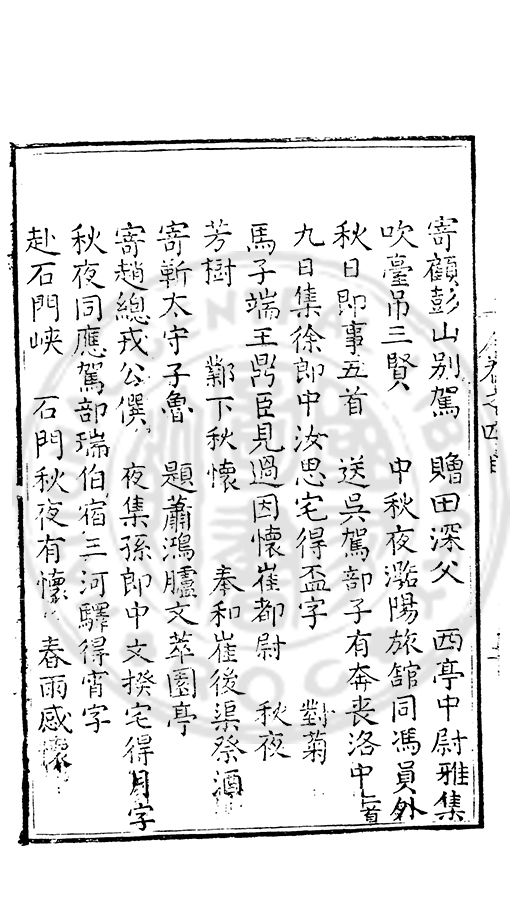 寄顧彭山别駕　贈田深父　西亭中尉雅集
吹臺吊三賢　中秋夜滏陽旅舘同馮員外
秋日即事五首　送吳駕部子有奔喪洛中二首
九日集徐郎中汝思宅得盃字　對菊
馬子端王鼎臣見過因懷崔都尉　秋夜
芳樹　鄴下秋懷　奉和崔後渠祭酒
寄靳太守子魯　題蕭鴻臚文萃園亭
寄趙總戎公僎　夜集孫郎中文揆宅得月字
秋夜同應駕部瑞伯宿三河驛得宵字
赴石門峽　石門秋夜有懷　春雨感懷